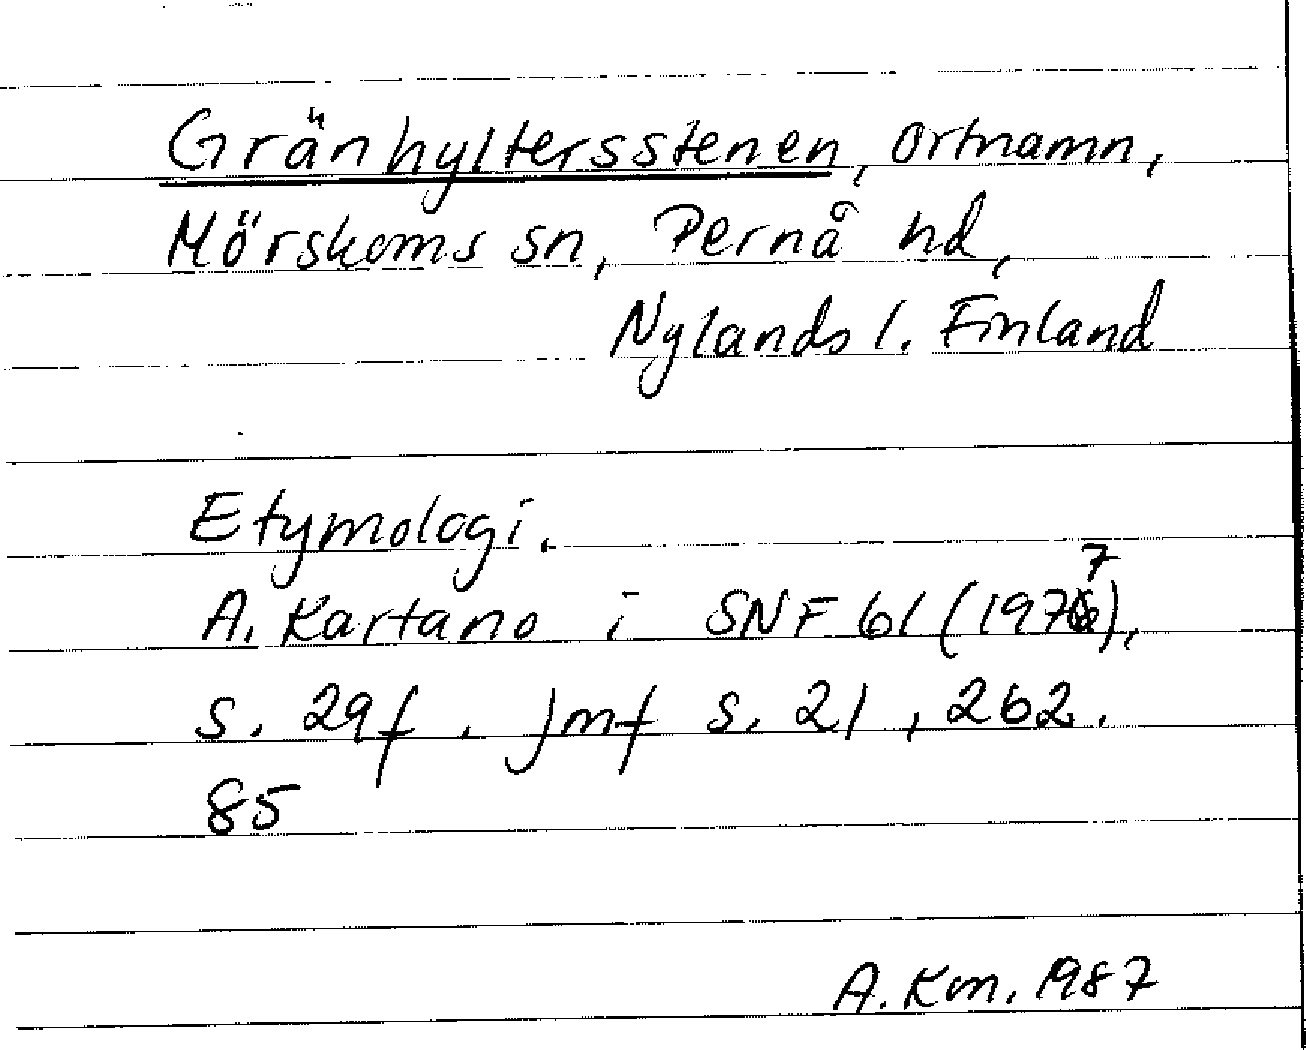 Gränhyltersstenen, ortnamn,
Mörskoms sn, Pernå hd,
Nylands l. Finland
Etymologi.
A. Kartano i SNF 61 (1977),
s. 29f. Jmf s. 21, 262.
85
A. Km. 1987